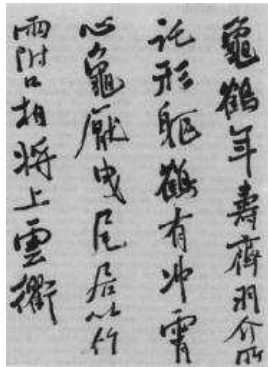 龜鶴年壽齊羽介所
託形躯鶴有冲霄
心龜厭曳尾居以竹
兩附口相將上雲衢